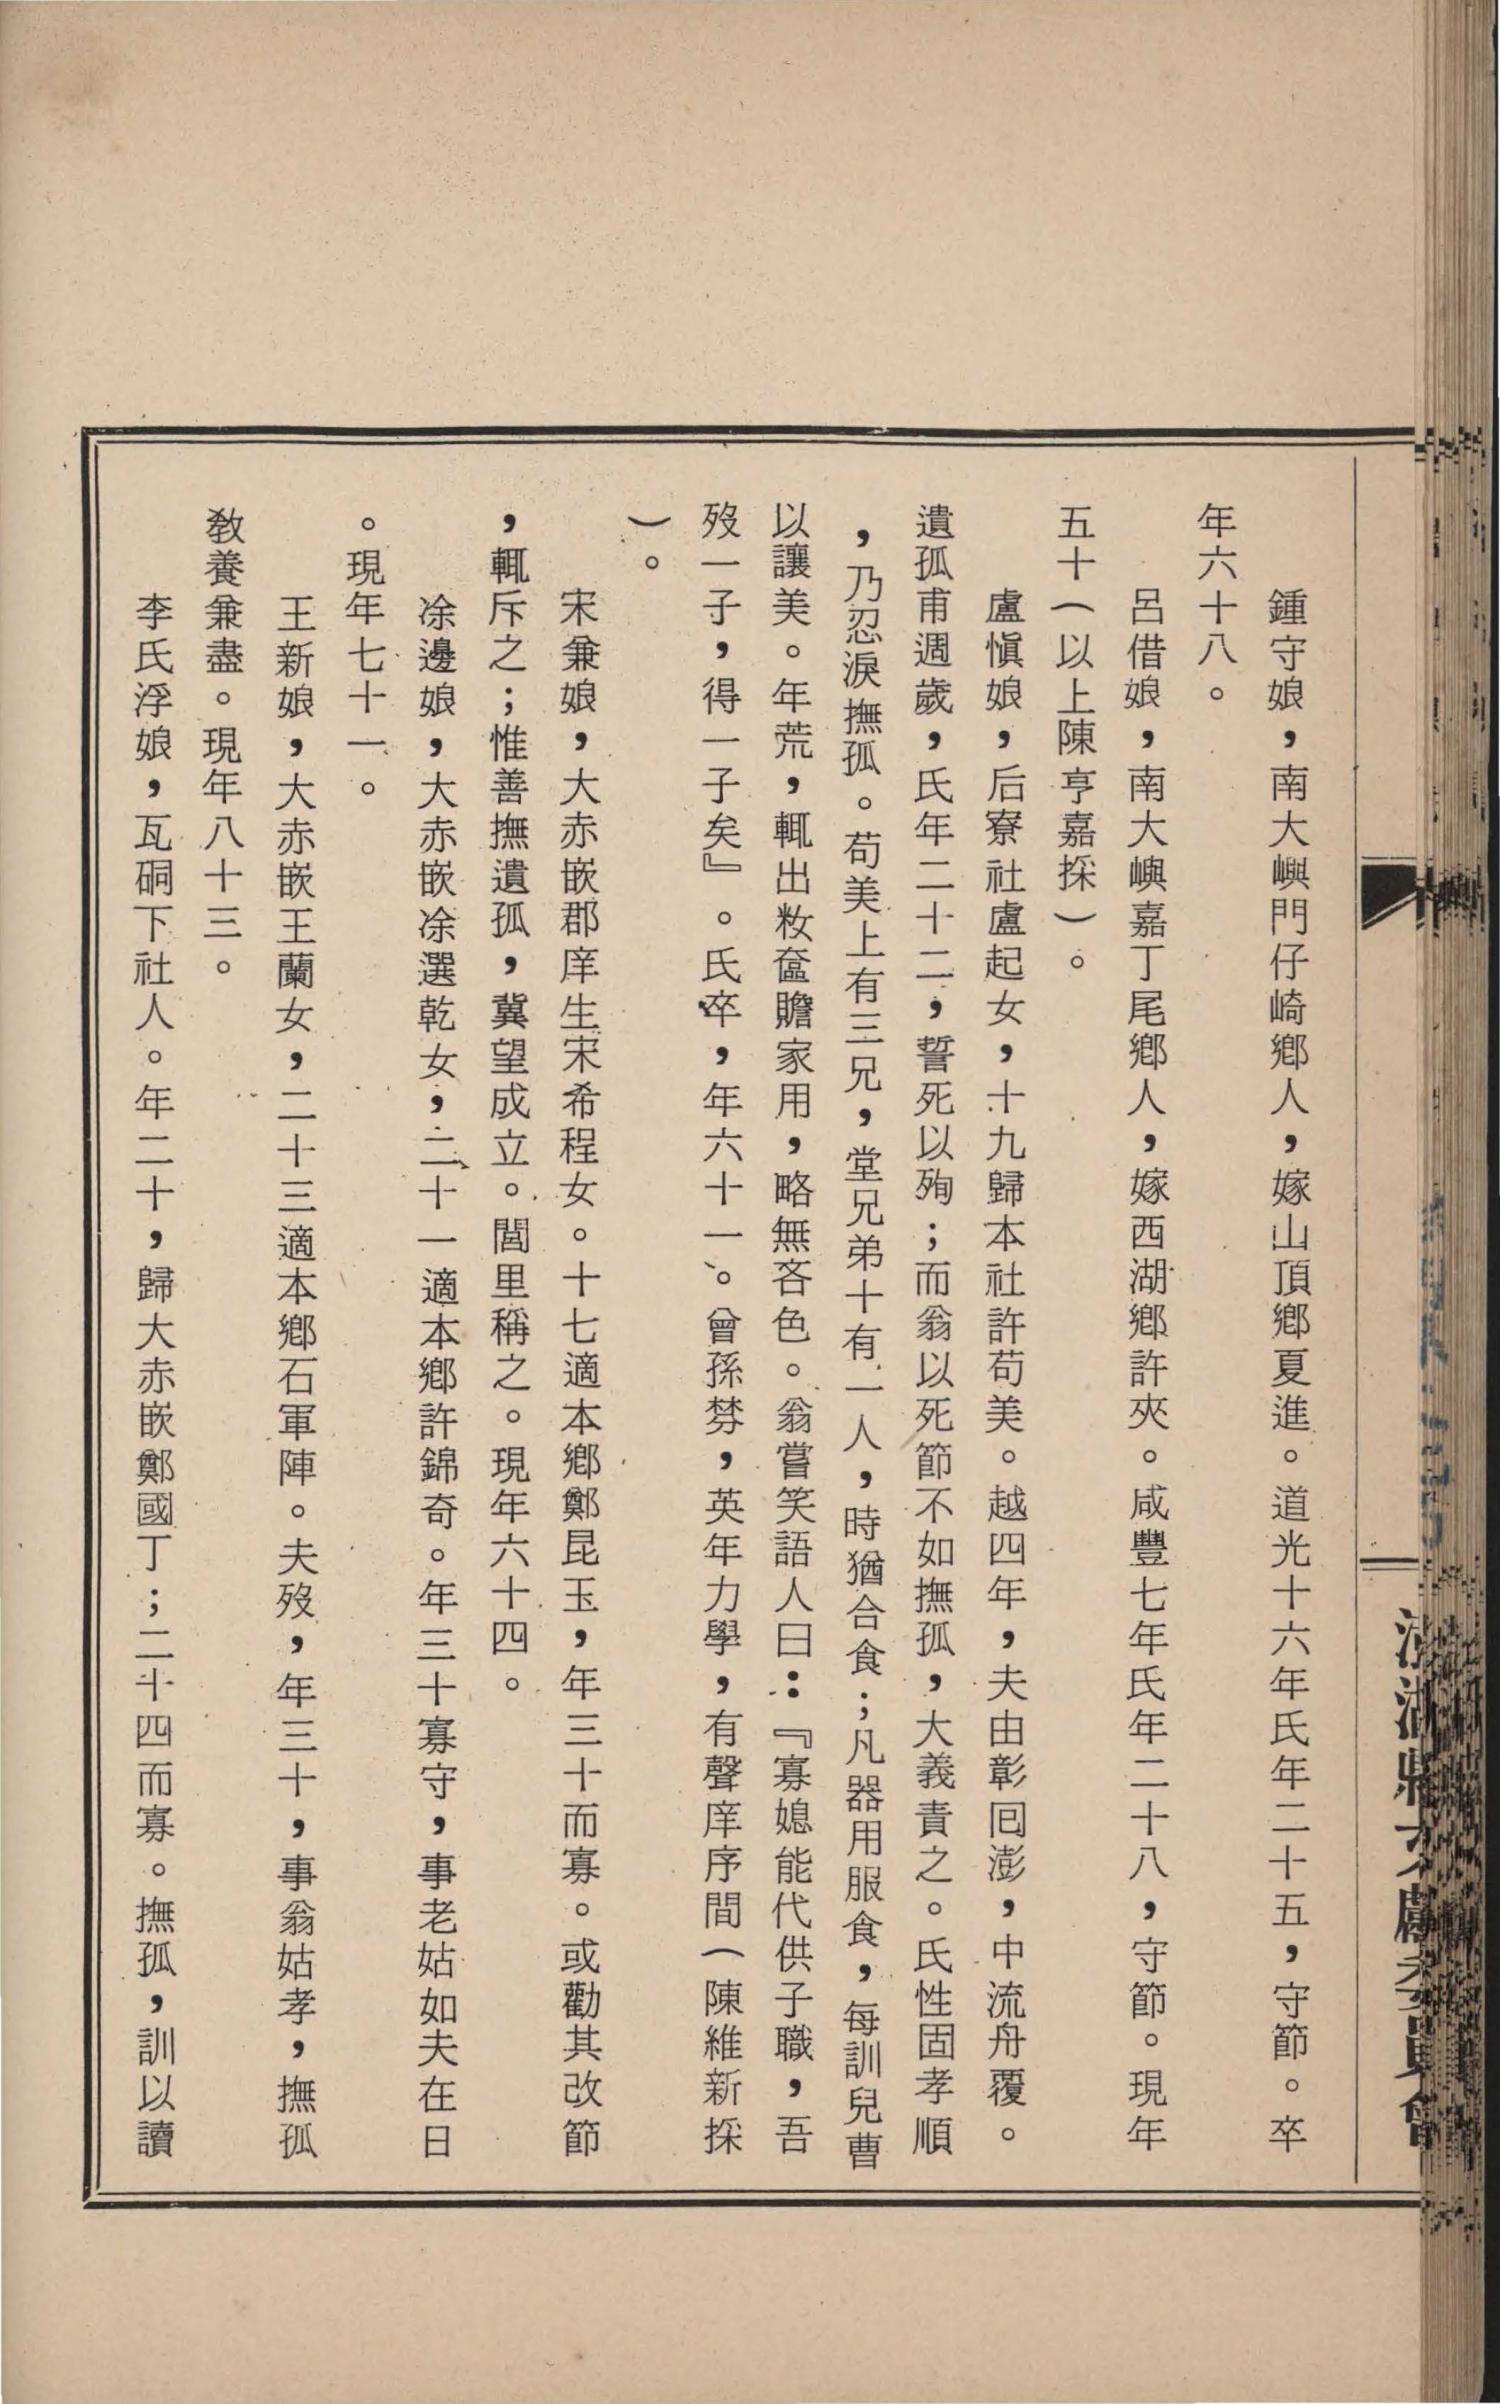 鍾守娘，南大嶼門仔崎鄉人，嫁山頂鄉夏進。道光十六年氏年二十五，守節。卒
年六十八。
呂借娘，南大嶼嘉丁尾鄉人，嫁西湖鄉許夾。咸豐七年氏年二十八，守節。現年
五十（以上陳亨嘉採）。
盧愼娘，后寮社盧起女，十九歸本社許苟美。越四年，夫由彰囘澎，中流舟覆。
遺孤甫週歲，氏年二十二，誓死以殉；而翁以死節不如撫孤，大義責之。氏性固孝順
，乃忍淚撫孤。苟美上有三兄，堂兄弟十有一人，時猶合食；凡器用服食，每訓兒曹
以讓美。年荒，輒出籹奩贍家用，略無吝色。翁嘗笑語人曰：『寡媳能代供子職，吾
歿一子，得一子矣』。氏卒，年六十一。曾孫棼，英年力學，有聲庠序間（陳維新採
）。
宋兼娘，大赤嵌郡庠生宋希程女。十七適本鄉鄭昆玉，年三十而寡。或勸其改節
，輒斥之；惟善撫遺孤，冀望成立。閭里稱之。現年六十四。
凃邊娘，大赤嵌凃選乾女，二十一適本鄉許錦奇。年三十寡守，事老姑如夫在日
。現年七十一。
王新娘，大赤嵌王蘭女，二十三適本鄉石軍陣。夫歿，年三十，事翁姑孝，撫孤
敎養兼盡。現年八十三。
李氏浮娘，瓦硐下社人。年二十，歸大赤嵌鄭國丁；二十四而寡。撫孤，訓以讀